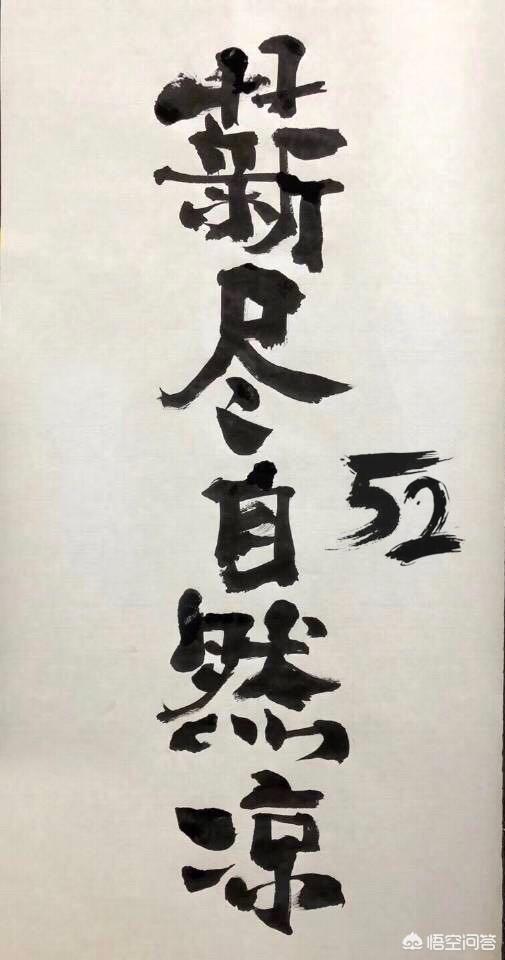 薪尽自然凉
52
悟空问答